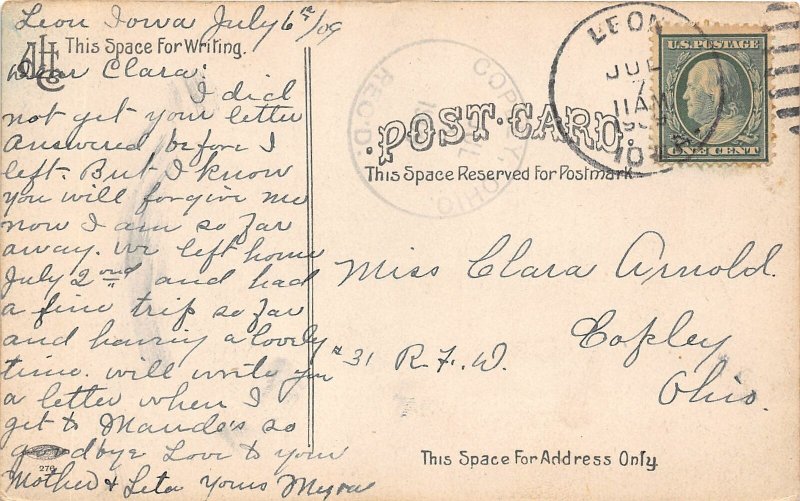 Leon Iowa July 6th/09
This Space For Writing.
Dear Clara:
I did
not get your letter
answered before I
left. But I know
you will forgive me
now I am so far
away. We left home
July 2nd and had
a fine trip so far
and having a lovely
time. will write you
a letter when I
get to Maude's so
goodbye Love to your
Mother & Leta Yours Myra
276
POST CARD.
This Space Reserved For Postmark
COPLEY, OHIO.
REC'D.
LEON
JUL
7
11AM
U.S. POSTAGE
ONE CENT
Miss Clara Arnold.
Copley
#31 R.F.D.
Ohio.
This Space For Address Only.